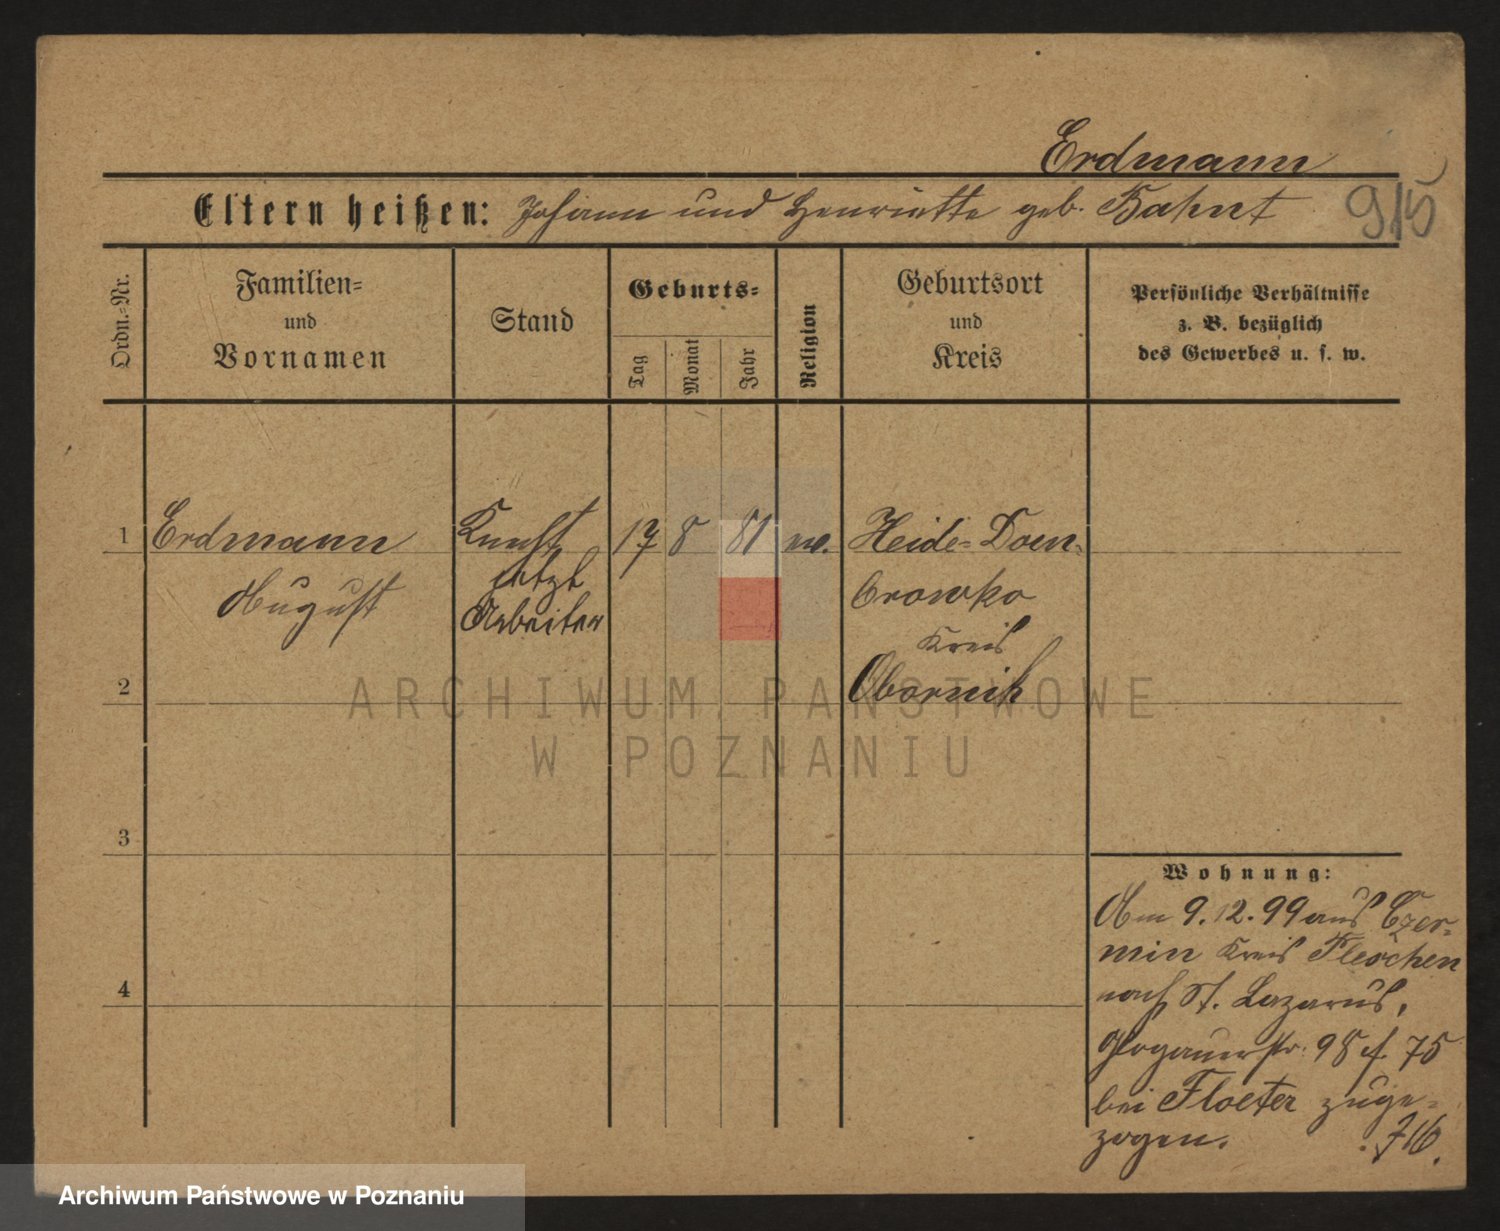 Erdmann
Eltern heißen: Johann und Henriette geb. Bahnt
915
Ordn.-Nr.
Familien-
und
Vornamen
Stand
Geburts-
Tag
Monat
Jahr
Religion
Geburtsort
und
Kreis
Persönliche Verhältnisse
z. B. bezüglich
des Gewerbes u. s. w.
1 Erdmann
August
jetzt
Arbeiter
17 8 81 ev.
Heide-Dom-
browko
Kreis
Obornik
2
3
4
Wohnung:
Am 9.12.99 aus Czer-
min Kreis Pleschen
nach St. Lazarus,
Glogauerstr. 98 75
bei Floeter zuge-
zogen. 716.
ARCHIWUM PAŃSTWOWE
W POZNANIU
Archiwum Państwowe w Poznaniu